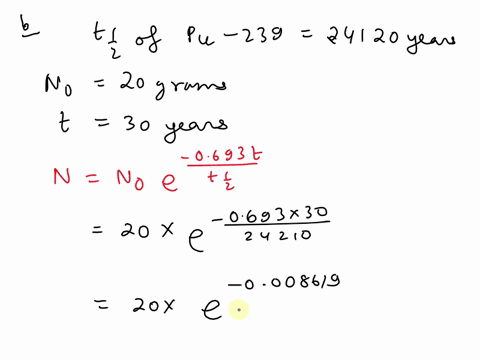 b t1/2 of Pu-239 = 24120 years
N₀ = 20 grams
t = 30 years
N = N₀ e^(-0.693t / t1/2)
= 20 × e^(-0.693×30 / 24210)
= 20× e^(-0.008619)